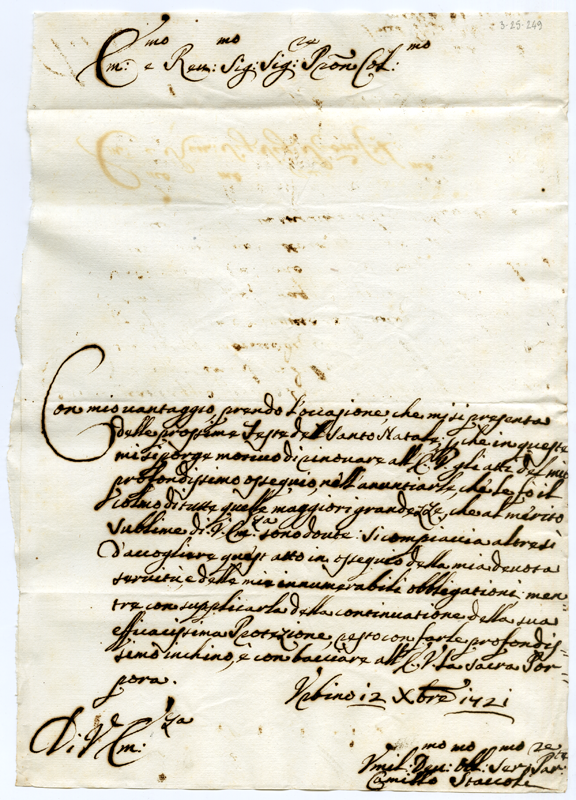 3-25-249
Em:mo e Rev:mo Sig: Sig:re Prōn Col:mo
Con mio vantaggio, prendo l'occasione, che mi si presenta
delle prossime Feste del Santo Natale, che in queste
mi si porge motivo di rinovare all'E. V. gli atti del mio
profondissimo ossequio, nell'annuntiarle, che le fò il
colmo di tutte quelle maggiori grandezze, che al merito
sublime di V. Em:za sono dovute. Si compiaccia altresì
d'accogliere quest'atto in ossequio della mia devota
servitù, e delle mie innumerabili obbligationi, men-
tre con supplicarla della continuatione della sua
efficacissima Protezione, resto con farle profondis-
simo inchino, e con bacciare all'E. V. la Sacra Por-
pora.
Urbino 12 Xbre 1721
Di V. Em:za
Umil:mo Dev:mo Obl:mo Ser:re
Camillo Staccoli